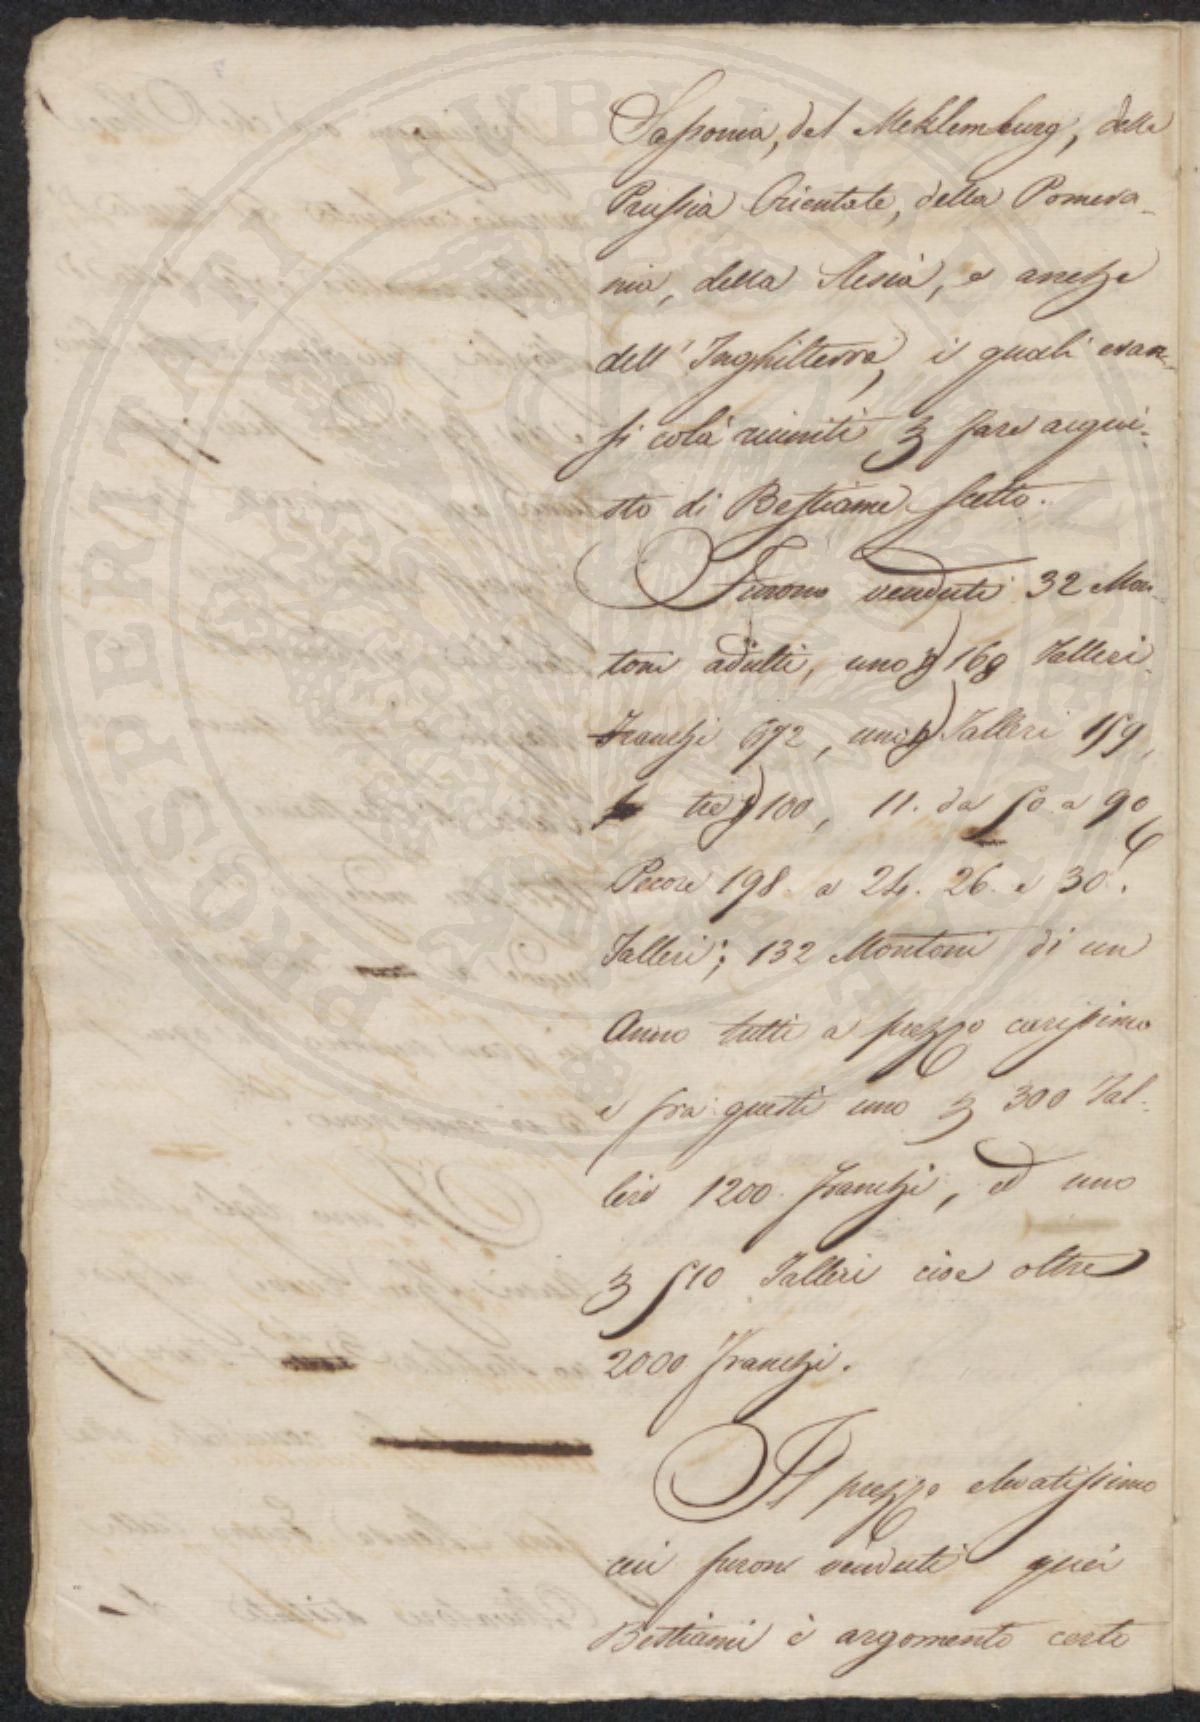 Sassonia, del Meklemburg, della
Prussia Orientale, della Pomera-
nia, della Slesia, e anche
dell' Inghilterra, i quali eran-
si colà riuniti ꝑ fare acqui-
sto di Bestiame scelto.
Furono venduti 32 Mon-
toni adulti, uno ꝑ 168 Talleri
Franchi 672, uno ꝑ Talleri 159,
tre ꝑ 100, 11. da 50 a 90
Pecore 198. a 24. 26. e 30.
Talleri; 132 Montoni di un
Anno tutti a prezzo carissimo
e fra questi uno ꝑ 300 Tal-
leri 1200 franchi, ed uno
ꝑ 510 Talleri cioe oltre
2000 franchi.
Il prezzo elevatissimo
cui furono venduti quei
Bestiami è argomento certo
PROSPERITATI PUBLICAE